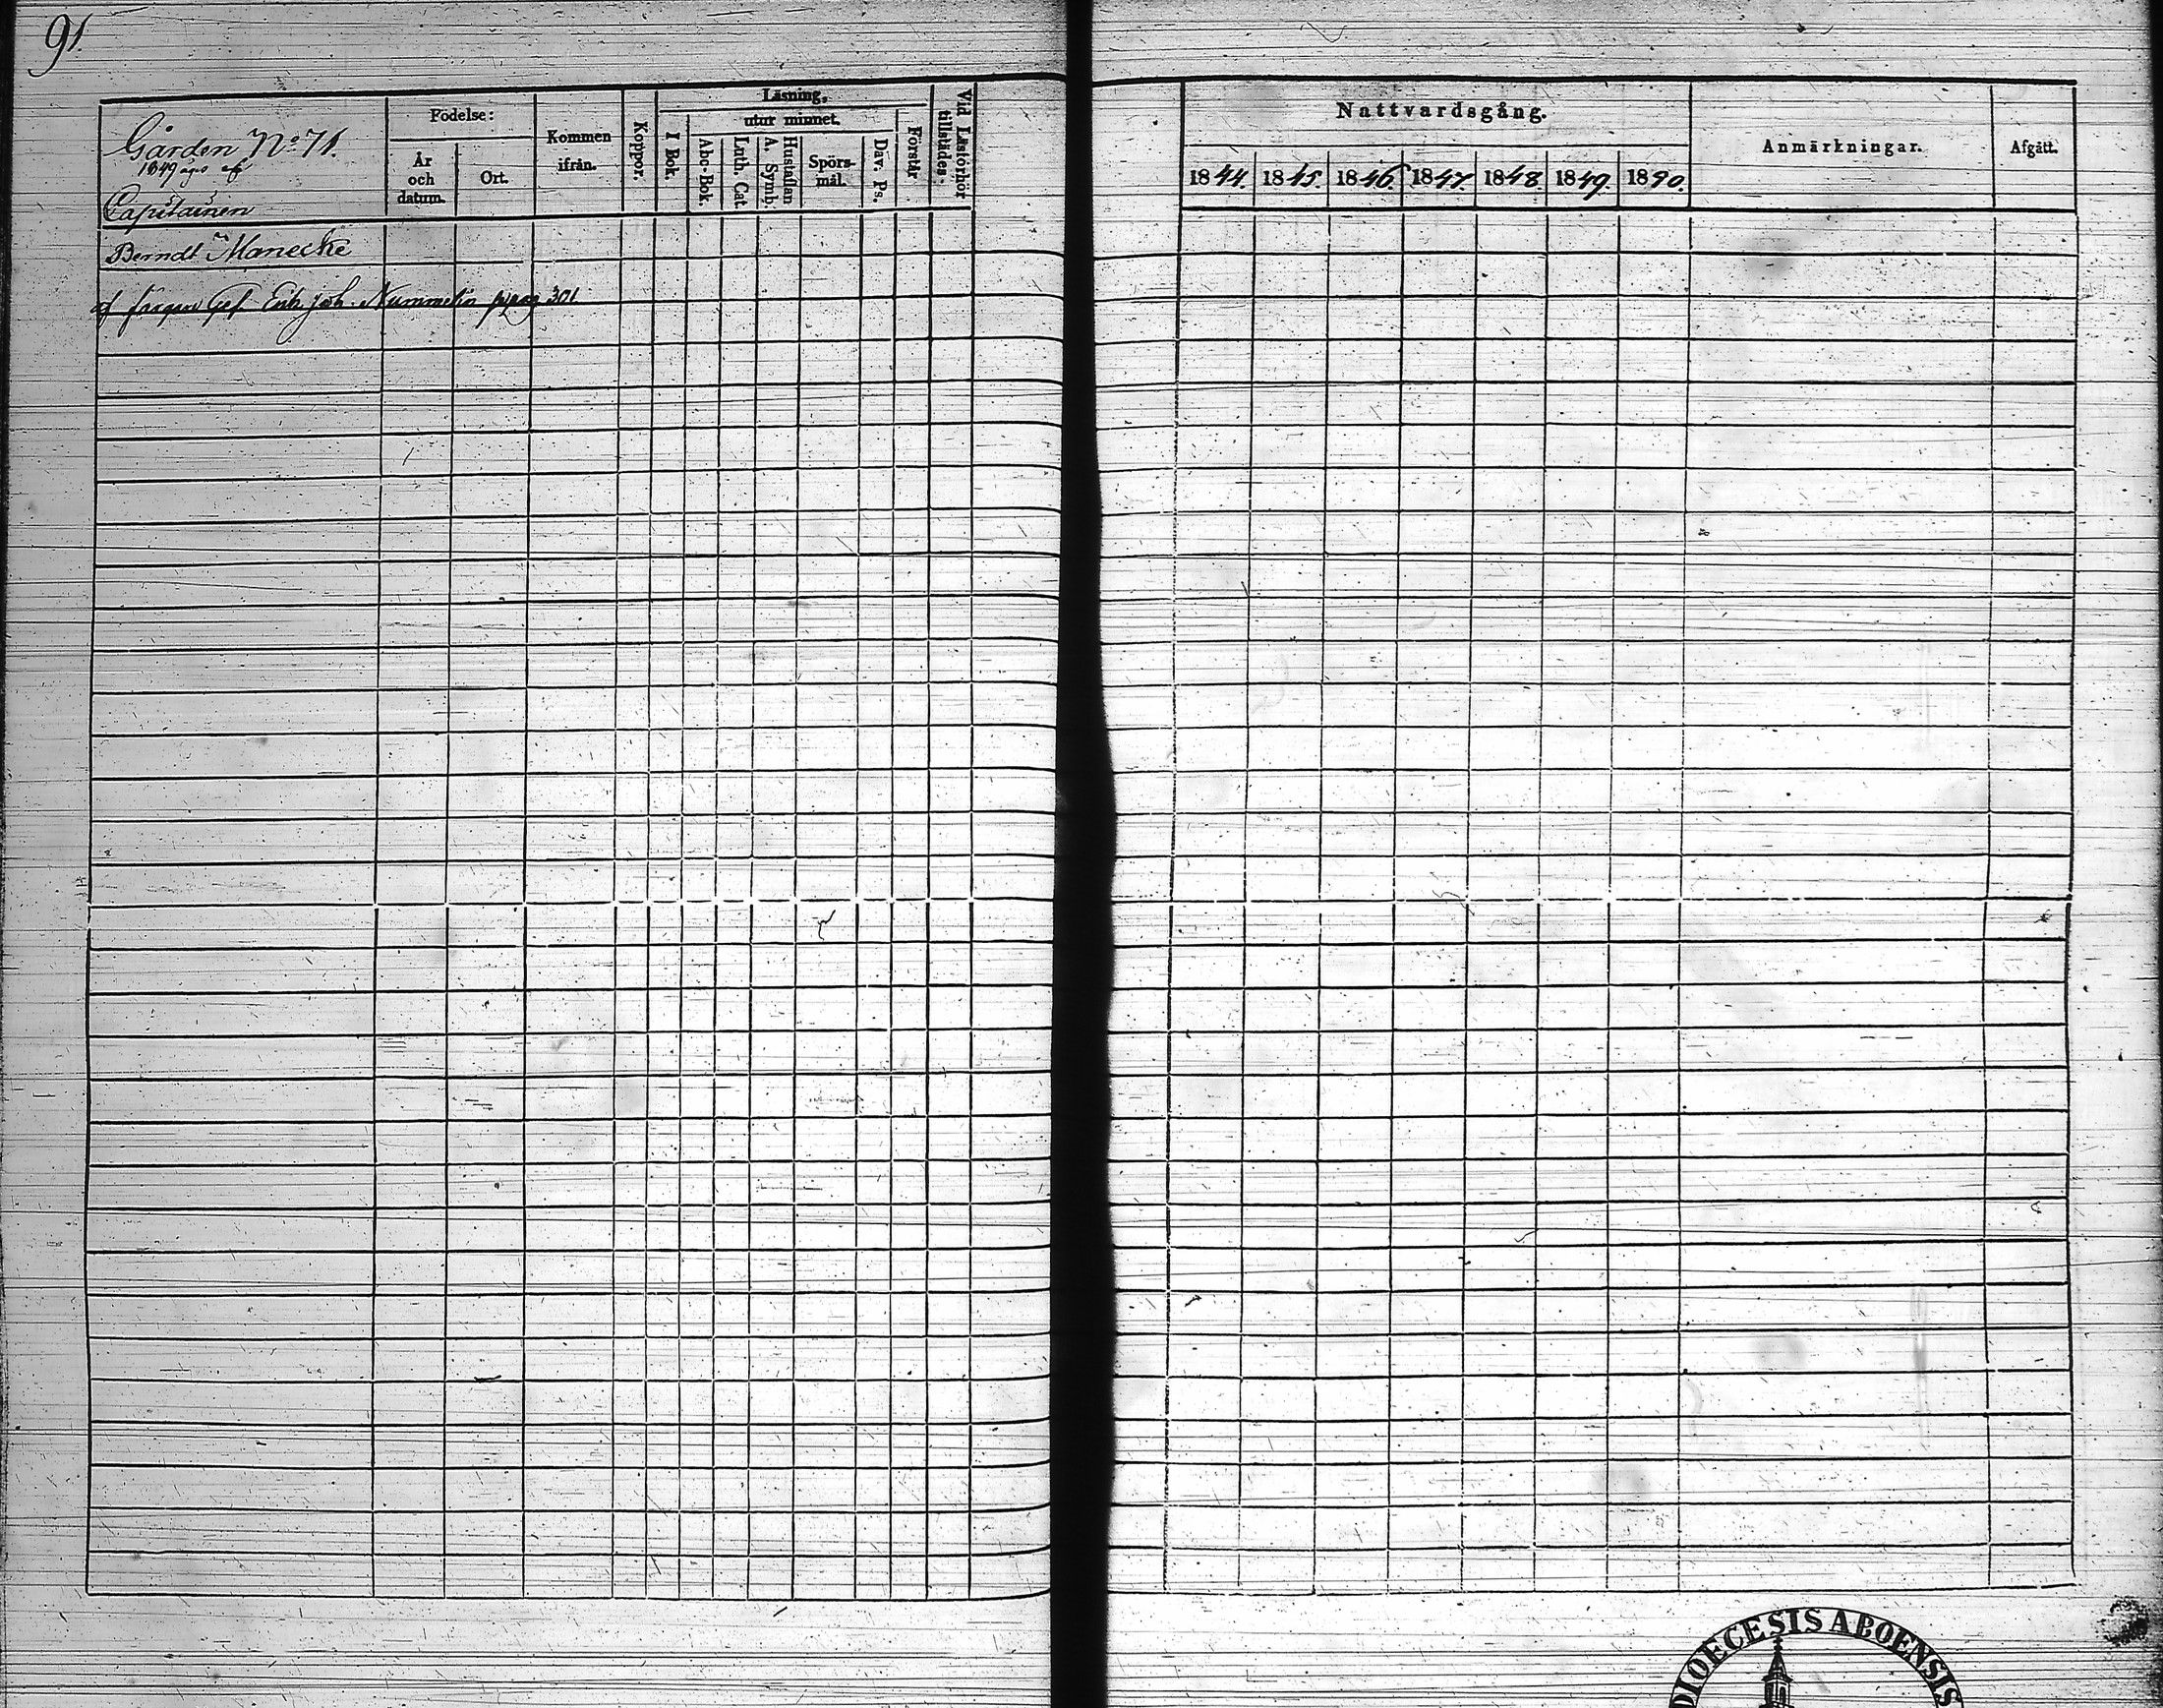 91
Gården No 71.
1849 äges af
Capitainen
Berndt Manecke
af färgare Ges. Erik Joh. Nummelin pag 301
Födelse:
År
och
datum.
Ort.
Kommen
ifrån.
Koppor.
Läsning,
utur minnet.
I Bok.
Abc-Bok
Luth. Cat.
A. Symb.
Hustaflan
Spörs-
mål.
Dav. Ps.
Förstår.
Vid Läsförhör
tillstädes.
Nattvardsgång.
1844. 1845. 1846. 1847. 1848. 1849. 1850.
Anmärkningar.
Afgått.
DIOECESIS ABOENSIS